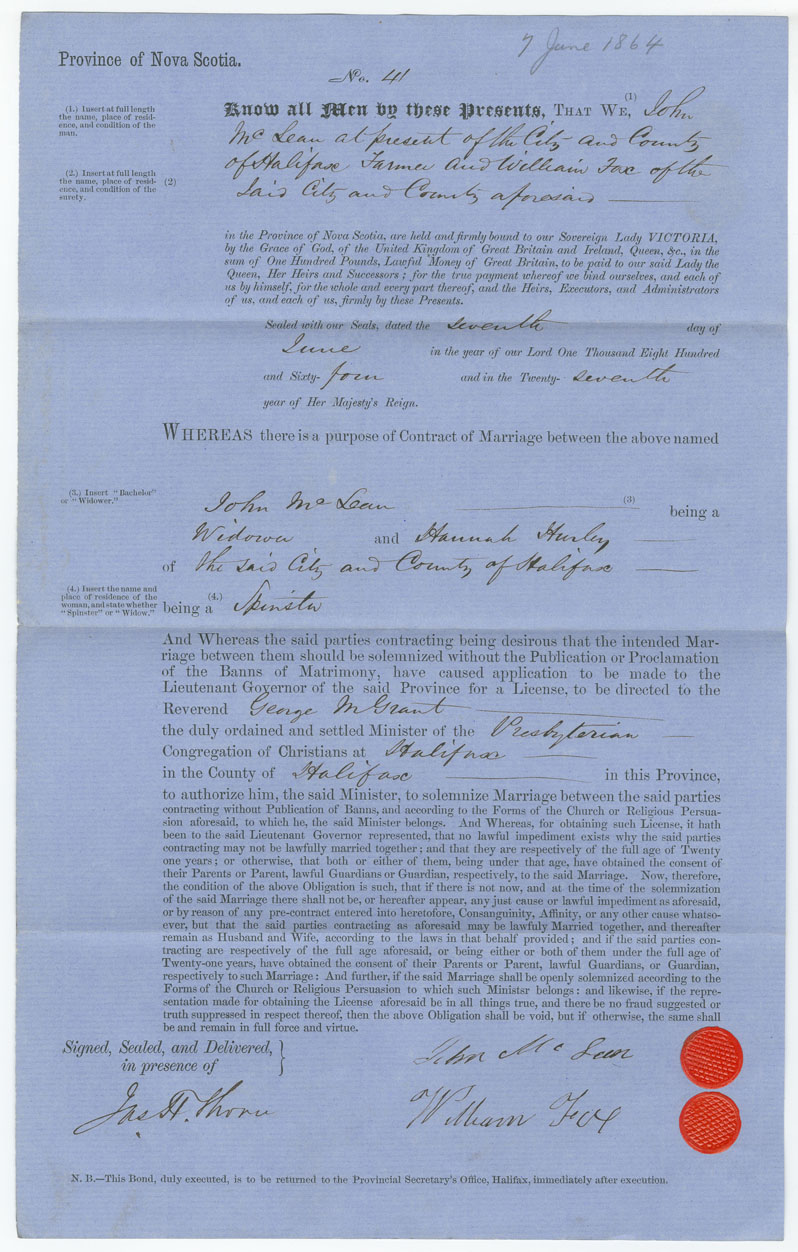 7 June 1864
Province of Nova Scotia.
No. 41
(1.) Insert at full length
the name, place of resid-
ence, and condition of the
man.
Know all Men by these Presents, THAT WE, (1) John
Mc Lean at present of the City and County
(2.) Insert at full length
the name, place of resid-
ence, and condition of the
surety.
of Halifax Farmer and William Fox of the
(2) Said City and County aforesaid
in the Province of Nova Scotia, are held and firmly bound to our Sovereign Lady VICTORIA,
by the Grace of God, of the United Kingdom of Great Britain and Ireland, Queen, &c., in the
sum of One Hundred Pounds, Lawful Money of Great Britain, to be paid to our said Lady the
Queen, Her Heirs and Successors; for the true payment whereof we bind ourselves, and each of
us by himself, for the whole and every part thereof, and the Heirs, Executors, and Administrators
of us, and each of us, firmly by these Presents.
Sealed with our Seals, dated the seventh day of
June in the year of our Lord One Thousand Eight Hundred
and Sixty-four and in the Twenty-seventh
year of Her Majesty's Reign.
WHEREAS there is a purpose of Contract of Marriage between the above named
(3.) Insert "Bachelor"
or "Widower."
John Mc Lean (3) being a
Widower and Hannah Hurley
of the said City and County of Halifax
(4.) Insert the name and
place of residence of the
woman, and state whether
"Spinster" or "Widow."
being a (4.) Spinster
And Whereas the said parties contracting being desirous that the intended Mar-
riage between them should be solemnized without the Publication or Proclamation
of the Banns of Matrimony, have caused application to be made to the
Lieutenant Governor of the said Province for a License, to be directed to the
Reverend George M Grant
the duly ordained and settled Minister of the Presbyterian
Congregation of Christians at Halifax
in the County of Halifax in this Province,
to authorize him, the said Minister, to solemnize Marriage between the said parties
contracting without Publication of Banns, and according to the Forms of the Church or Religious Persua-
sion aforesaid, to which he, the said Minister belongs. And Whereas, for obtaining such License, it hath
been to the said Lieutenant Governor represented, that no lawful impediment exists why the said parties
contracting may not be lawfully married together; and that they are respectively of the full age of Twenty
one years; or otherwise, that both or either of them, being under that age, have obtained the consent of
their Parents or Parent, lawful Guardians or Guardian, respectively, to the said Marriage. Now, therefore,
the condition of the above Obligation is such, that if there is not now, and at the time of the solemnization
of the said Marriage there shall not be, or hereafter appear, any just cause or lawful impediment as aforesaid,
or by reason of any pre-contract entered into heretofore, Consanguinity, Affinity, or any other cause whatso-
ever, but that the said parties contracting as aforesaid may be lawfuly Married together, and thereafter
remain as Husband and Wife, according to the laws in that behalf provided; and if the said parties con-
tracting are respectively of the full age aforesaid, or being either or both of them under the full age of
Twenty-one years, have obtained the consent of their Parents or Parent, lawful Guardians, or Guardian,
respectively to such Marriage: And further, if the said Marriage shall be openly solemnized according to the
Forms of the Church or Religious Persuasion to which such Ministsr belongs: and likewise, if the repre-
sentation made for obtaining the License aforesaid be in all things true, and there be no fraud suggested or
truth suppressed in respect thereof, then the above Obligation shall be void, but if otherwise, the same shall
be and remain in full force and virtue.
Signed, Sealed, and Delivered,
in presence of
John Mc Lean
Jas H. Thorne
William Fox
N. B.—This Bond, duly executed, is to be returned to the Provincial Secretary's Office, Halifax, immediately after execution.